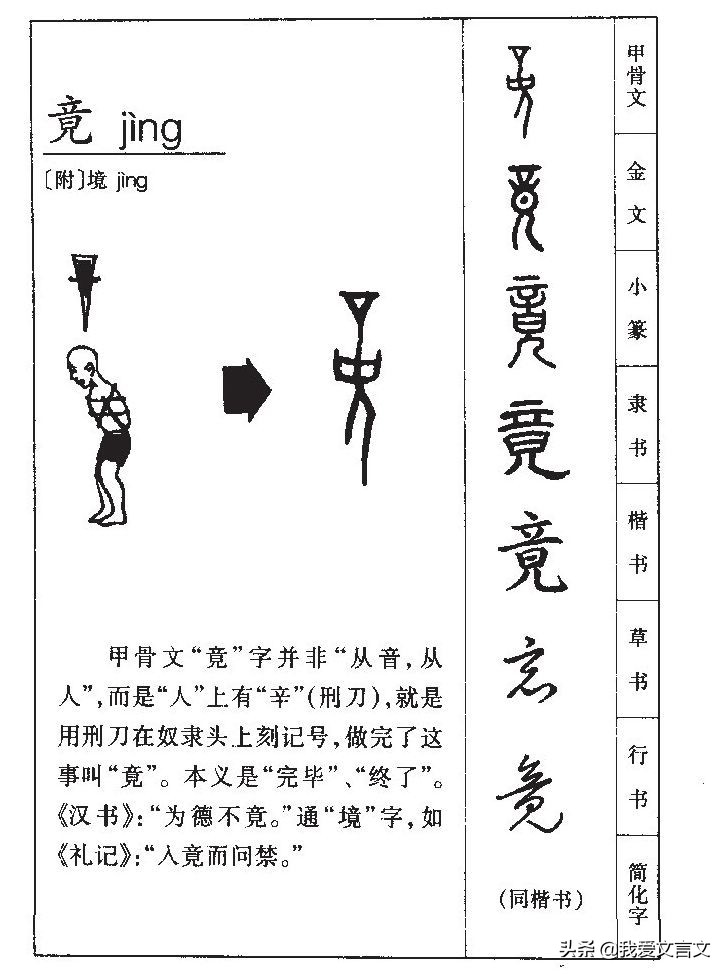 竟 jìng
〔附〕境 jìng
甲骨文“竟”字并非“从音,从
人”,而是“人”上有“辛”(刑刀),就是
用刑刀在奴隶头上刻记号,做完了这
事叫“竟”。本义是“完毕”、“终了”。
《汉书》:“为德不竟。”通“境”字,如
《礼记》:“入竟而问禁。”
甲骨文
金文
小篆
隶书
竟
楷书
竟
草书
行书
竟
简化字
(同楷书)
头条 @我爱文言文